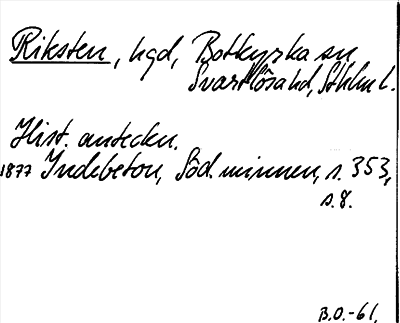 Riksten, hgd, Botkyrka sn
Svartlösa hd, Sthlm l.
Hist. anteckn.
1877 Indebetou, Söd. minnen, s. 353,
s. 8.
B.O.-61.